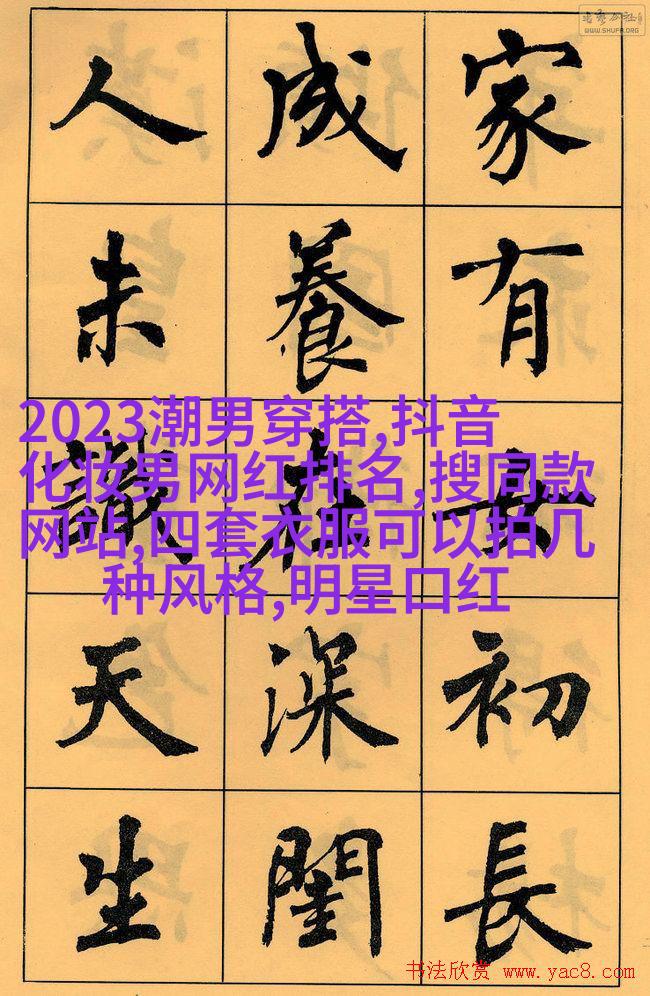 WWW.SHUFA.ORG
家有女初長
成養在深閨
人未識天生
2023潮男穿搭,抖音
化妆男网红排名,搜同款
网站,四套衣服可以拍几
种风格,明星口红
书法欣赏 www.yac8.com